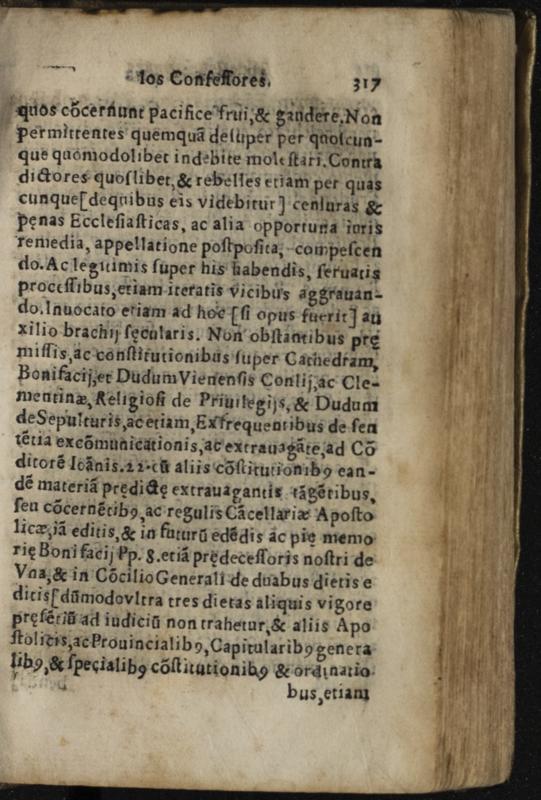 los Confessores. 317
quos cõcernunt pacifice frui, & gaudere. Non
permittentes quemquã desuper per quoscun-
que quomodolibet indebite molestari. Contra
dictores quoslibet, & rebelles etiam per quas
cunque [de quibus eis videbitur] censuras &
pęnas Ecclesiasticas, ac alia opportuna iuris
remedia, appellatione postposita, compescen
do. Ac legitimis super his habendis, seruatis
processibus, etiam iteratis vicibus aggrauan-
do. Inuocato etiam ad hoc [si opus fuerit] au
xilio brachij sęcularis. Non obstantibus prę
missis, ac constitutionibus super Cathedram,
Bonifacij, et Dudum Vienensis Conlij, ac Cle-
mentinæ, Religiosi de Priuilegijs, & Dudum
de Sepulturis, ac etiam, Exfrequentibus de sen
tẽtia excõmunicationis, ac extrauagãte, ad Cõ
ditorẽ Ioãnis. 22. cũ aliis cõstitutionibꝯ ean-
dẽ materiã prędictę extrauagantis tãgẽtibus,
seu cõcernẽtibꝯ, ac regulis Cãcellariæ Aposto
licæ, iã editis, & in futurũ edẽdis ac pię memo
rię Bonifacij Pp. 8. etiã prędecessoris nostri de
Vna, & in Cõcilio Generali de duabus dietis e
ditis [dũmodo vltra tres dietas aliquis vigore
pręsẽtiũ ad iudiciũ non trahetur, & aliis Apo
stolicis, ac Prouincialibꝯ, Capitularibꝯ genera
libꝯ, & specialibꝯ cõstitutionibꝯ & ordinatio
bus, etiam